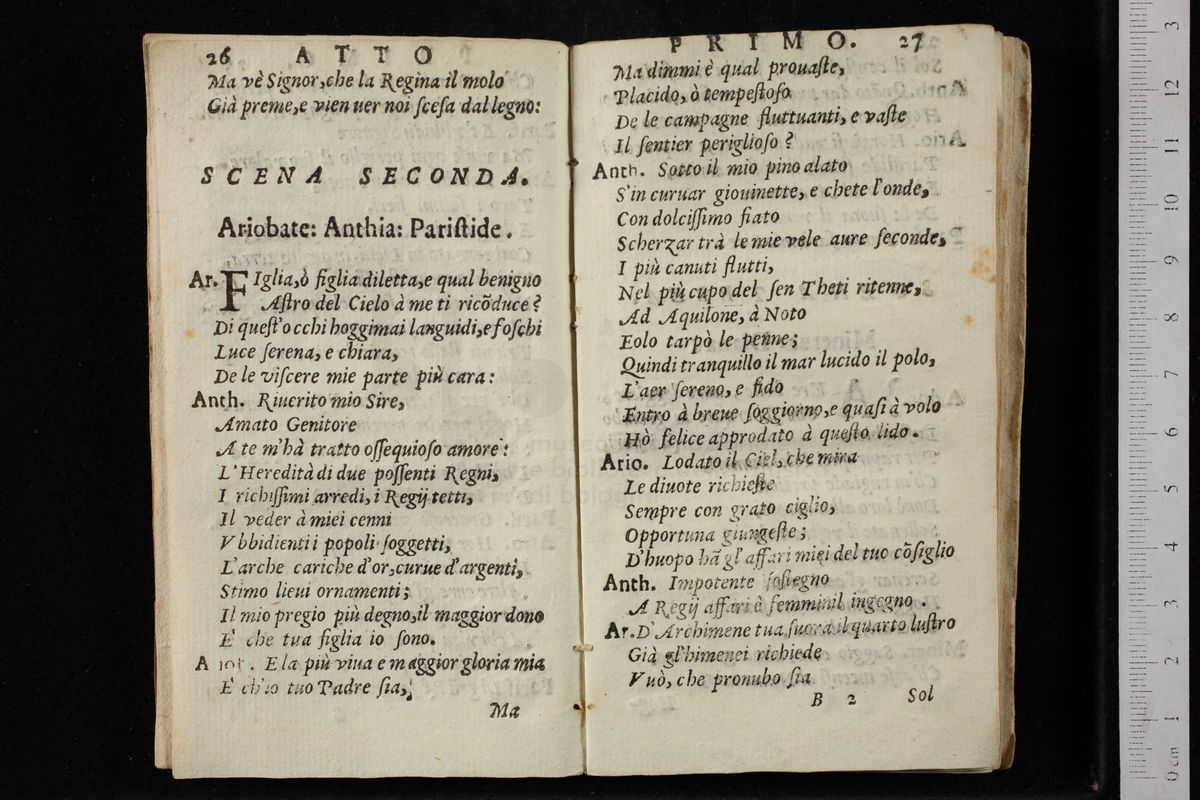 26 ATTO
Ma vè Signor, che la Regina il molo
Già preme, e vien uer noi ſceſa dal legno:
SCENA SECONDA.
Ariobate: Anthia: Pariſtide.
Ar. FIglia, ò figlia diletta, e qual benigno
Aſtro del Cielo à me ti ricõduce?
Di queſt'occhi hoggimai languidi, e foſchi
Luce ſerena, e chiara,
De le viſcere mie parte più cara:
Anth. Riuerito mio Sire,
Amato Genitore
A te m'hà tratto oſſequioſo amore:
L'Heredità di due poſſenti Regni,
I richiſſimi arredi, i Regij tetti,
Il veder à miei cenni
Vbbidienti i popoli ſoggetti,
L'arche cariche d'or, curue d'argenti,
Stimo lieui ornamenti;
Il mio pregio più degno, il maggior dono
È che tua figlia io ſono.
E la più viua e maggior gloria mia
È ch'io tuo Padre ſia,
Ma
PRIMO. 27
Ma dimmi è qual prouaſte,
Placido, ò tempeſtoſo
De le campagne fluttuanti, e vaſte
Il ſentier periglioſo?
Anth. Sotto il mio pino alato
S'in curuar giouinette, e chete l'onde,
Con dolciſſimo fiato
Scherzar trà le mie vele aure ſeconde,
I più canuti flutti,
Nel più cupo del ſen Theti ritenne,
Ad Aquilone, à Noto
Eolo tarpò le penne;
Quindi tranquillo il mar lucido il polo,
L'aer ſereno, e fido
Entro à breue ſoggiorno, e quaſi à volo
Hò felice approdato à queſto lido.
Ario. Lodato il Ciel, che mira
Le diuote richieſte
Sempre con grato ciglio,
Opportuna giungeſte;
D'huopo hã gl'affari miei del tuo cõſiglio
Anth. Impotente ſoſtegno
A Regij affari è femminil ingegno.
Ar. D'Archimene tua ſuora il quarto luſtro
Già gl'himenei richiede
Vuò, che pronubo ſia
B 2 Sol